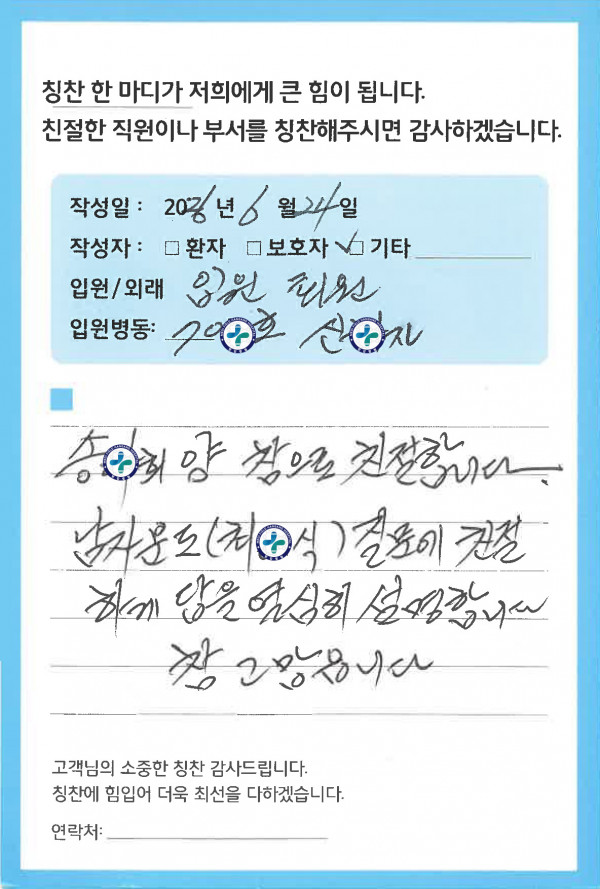 칭찬 한 마디가 저희에게 큰 힘이 됩니다.
친절한 직원이나 부서를 칭찬해주시면 감사하겠습니다.
작성일 : 20 년 6 월 24 일
작성자 : □ 환자 □ 보호자 ✓□ 기타
입원/외래 입원 퇴원
입원병동: 70 호 신 자
송 희 양 참으로 친절합니다.
남자분도 (최 식) 질문에 친절
하게 답을 열심히 설명합니다
참 고맙습니다
고객님의 소중한 칭찬 감사드립니다.
칭찬에 힘입어 더욱 최선을 다하겠습니다.
연락처: